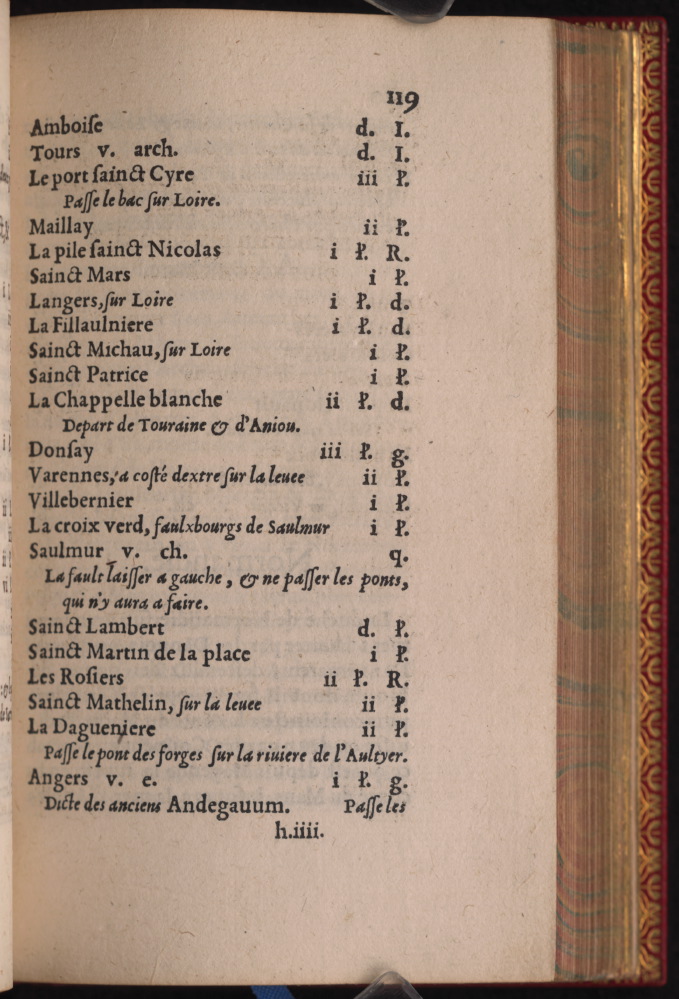 119
Amboiſe d. I.
Tours v. arch. d. I.
Le port ſainct Cyre iii ł.
Paſſe le bac ſur Loire.
Maillay ii ł.
La pile ſainct Nicolas i ł. R.
Sainct Mars i ł.
Langers, ſur Loire i ł. d.
La Fillaulniere i ł. d.
Sainct Michau, ſur Loire i ł.
Sainct Patrice i ł.
La Chappelle blanche ii ł. d.
Depart de Touraine & d'Aniou.
Donſay iii ł. g.
Varennes, a coſté dextre ſur la leuee ii ł.
Villebernier i ł.
La croix verd, faulxbourgs de Saulmur i ł.
Saulmur v. ch. q.
La fault laiſſer a gauche, & ne paſſer les ponts,
qui n'y aura a faire.
Sainct Lambert d. ł.
Sainct Martin de la place i ł.
Les Roſiers ii ł. R.
Sainct Mathelin, ſur la leuee ii ł.
La Dagueniere ii ł.
Paſſe le pont des forges ſur la riuiere de l'Aultyer.
Angers v. e. i ł. g.
Dicte des anciens Andegauum. Paſſe les
h.iiii.